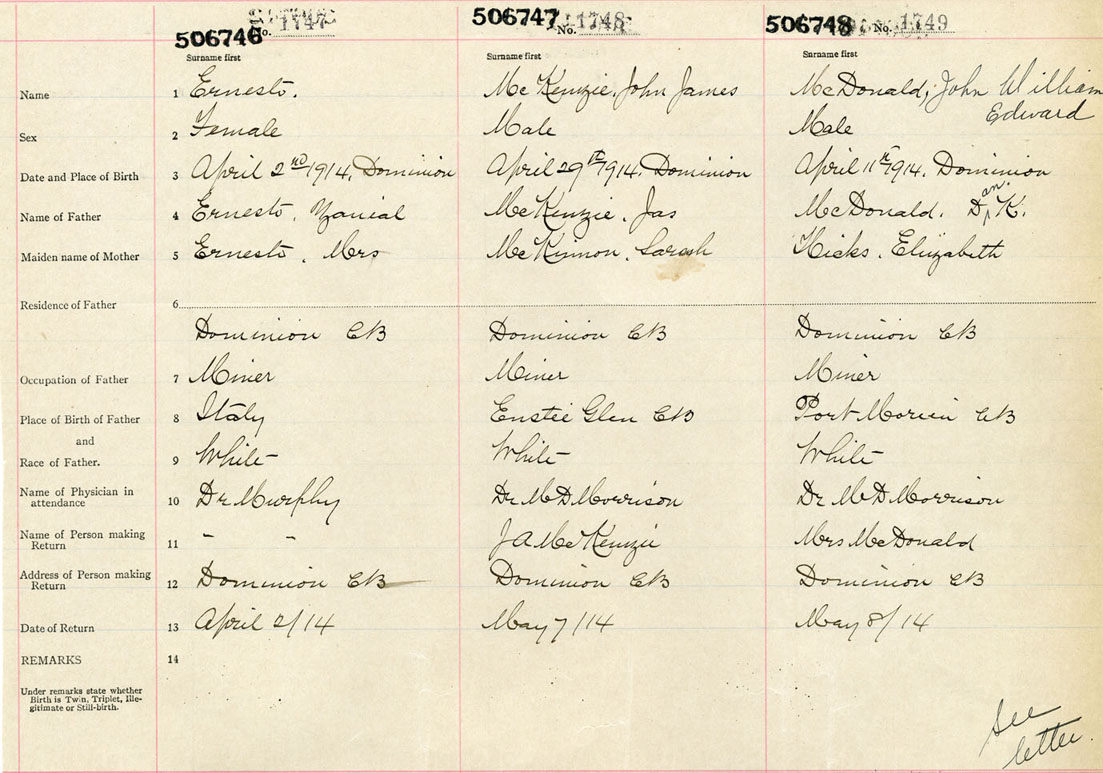 506746 No. 1747 506747 No. 1748 506748 No. 1749
Surname first Surname first Surname first
Name 1 Ernesto. McKenzie, John James McDonald, John William
Edward
Sex 2 Female Male Male
Date and Place of Birth 3 April 2nd 1914, Dominion April 29th 1914. Dominion April 11th 1914. Dominion
an.
Name of Father 4 Ernesto, McKenzie, Jas McDonald. D K.
Maiden name of Mother 5 Ernesto, Mrs McKinnon, Sarah Hicks, Elizabeth
Residence of Father 6
Dominion CB Dominion CB Dominion CB
Occupation of Father 7 Miner Miner Miner
Place of Birth of Father 8 Italy Glen CB Port Morien CB
and
Race of Father. 9 White White White
Name of Physician in
attendance 10 Dr Murphy Dr M D Morrison Dr M D Morrison
Name of Person making
Return 11 - - J A McKenzie Mrs McDonald
Address of Person making
Return 12 Dominion CB Dominion CB Dominion CB
Date of Return 13 April 2/14 May 7/14 May 8/14
REMARKS 14
Under remarks state whether
Birth is Twin, Triplet, Ille-
gitimate or Still-birth.
See
letter.